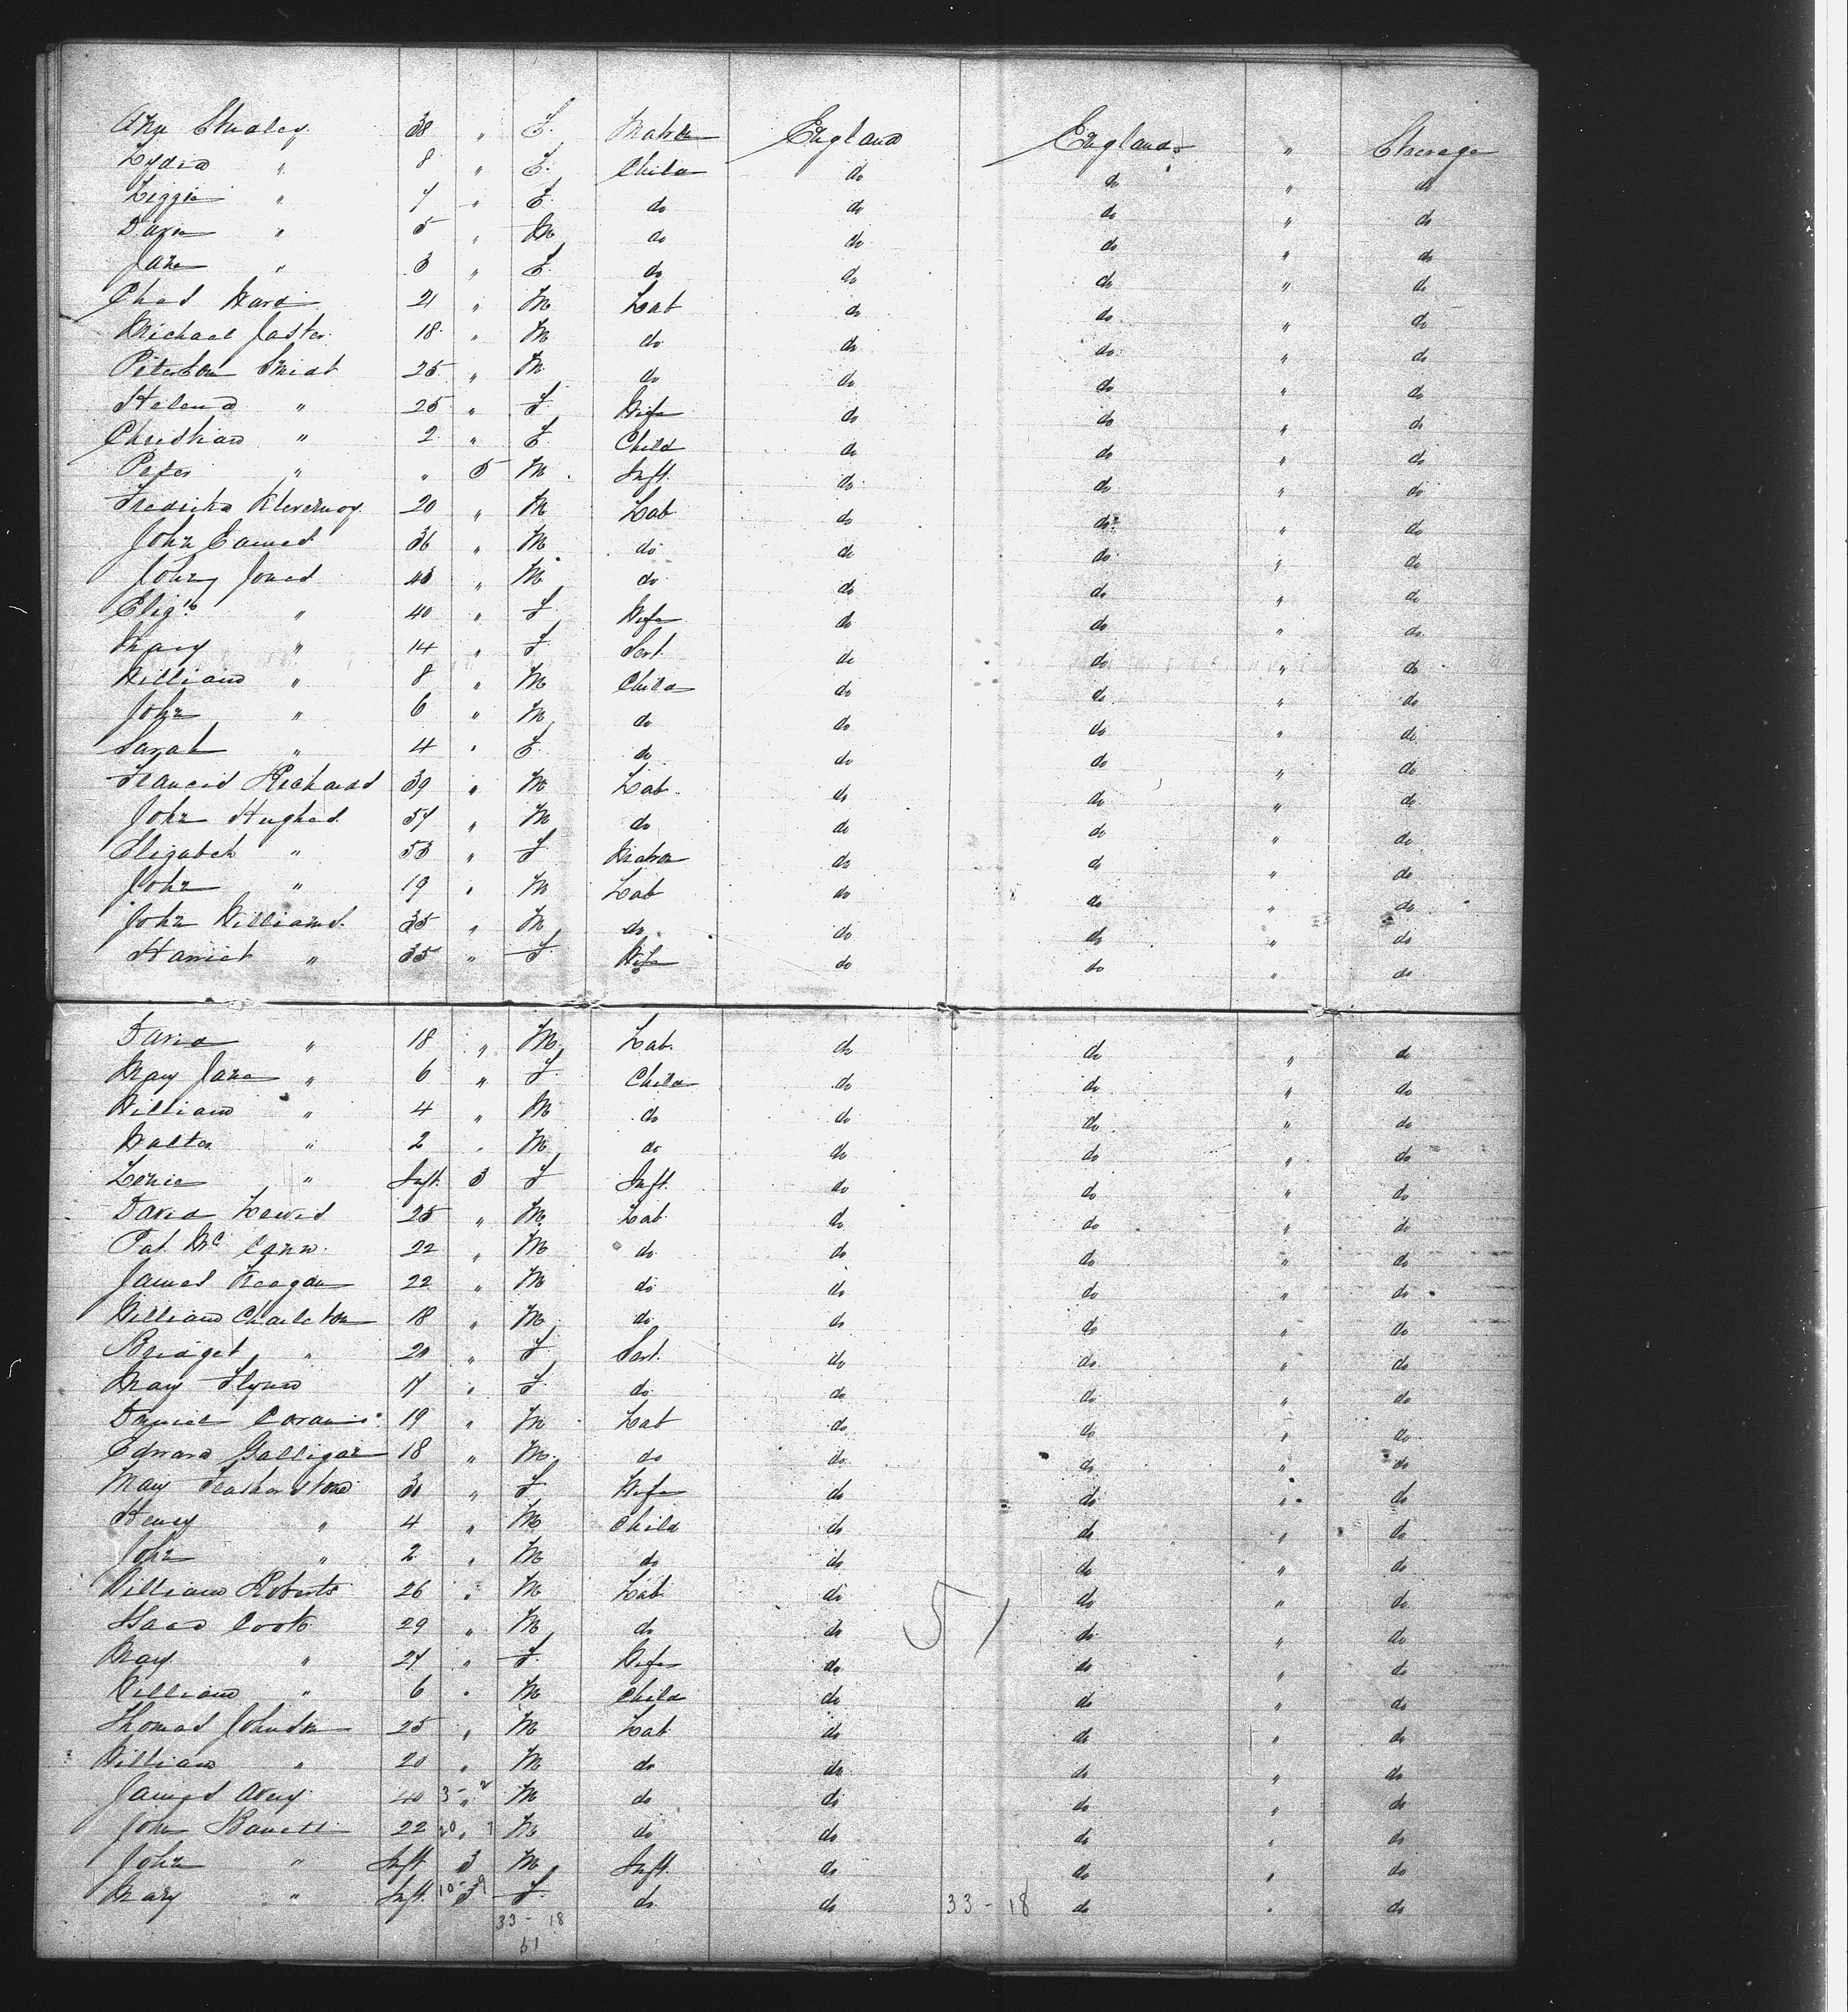 Ann Studley 38 " F. Matron England England " Steerage
Lydia " 8 " F. Child do do " do
Lizzie " 7 " F. do do do " do
David " 5 " M do do do " do
Jane " 3 " F. do do do " do
Chas Ward 21 " M Lab do do " do
Michael Jaster 18 " M do do do " do
Peterson Smidt 25 " M do do do " do
Helena " 25 " F Wife do do " do
Christian " 2 " F. Child do do " do
Peter " " 5 M Inft. do do " do
Fredrik 20 " M Lab do do " do
John Eames 36 " M do do do " do
John Jones 43 " M do do do " do
Eliz'th " 40 " F Wife do do " do
Mary " 14 " F Sert. do do " do
William " 8 " M Child do do " do
John " 6 " M do do do " do
Sarah " 4 " F. do do do " do
Francis Richards 39 " M Lab. do do " do
John Hughes 57 " M do do do " do
Elizabeth " 53 " F Matron do do " do
John " 19 " M Lab do do " do
John Williams 35 " M do do do " do
Harriet " 35 " F Wife do do " do
David " 18 " M Lab. do do " do
Mary Jane " 6 " F Child do do " do
William " 4 " M do do do " do
Walter " 2 " M do do do " do
" Inft. 3 F Inft. do do " do
David Lewis 25 " M Lab do do " do
Pat. Mc Cann 22 " M do do do " do
James Keegan 22 " M do do do " do
William Charleton 18 " M do do do " do
Bridget " 20 " F Sert. do do " do
Mary Flynn 17 " F do do do " do
Daniel 19 " M Lab do do " do
Edward Galligan 18 " M do do do " do
Mary Featherstone 30 " F Wife do do " do
Henry " 4 " M Child do do " do
John " 2 " M do do do " do
William Roberts 26 " M Lab do do " do
Isaac Cook 29 " M do do 51 do " do
Mary " 27 " F Wife do do " do
William " 6 " M Child do do " do
Thomas Johnson 25 " M Lab do do " do
William " 20 " M do do do " do
James Avery 40 3-2 " M do do do " do
John 22 20 " 7 M do do do " do
John " Inft. 3 M Inft. do do " do
Mary " Inft. 10-9 3 F do do 33-18 do " do
33-18
51